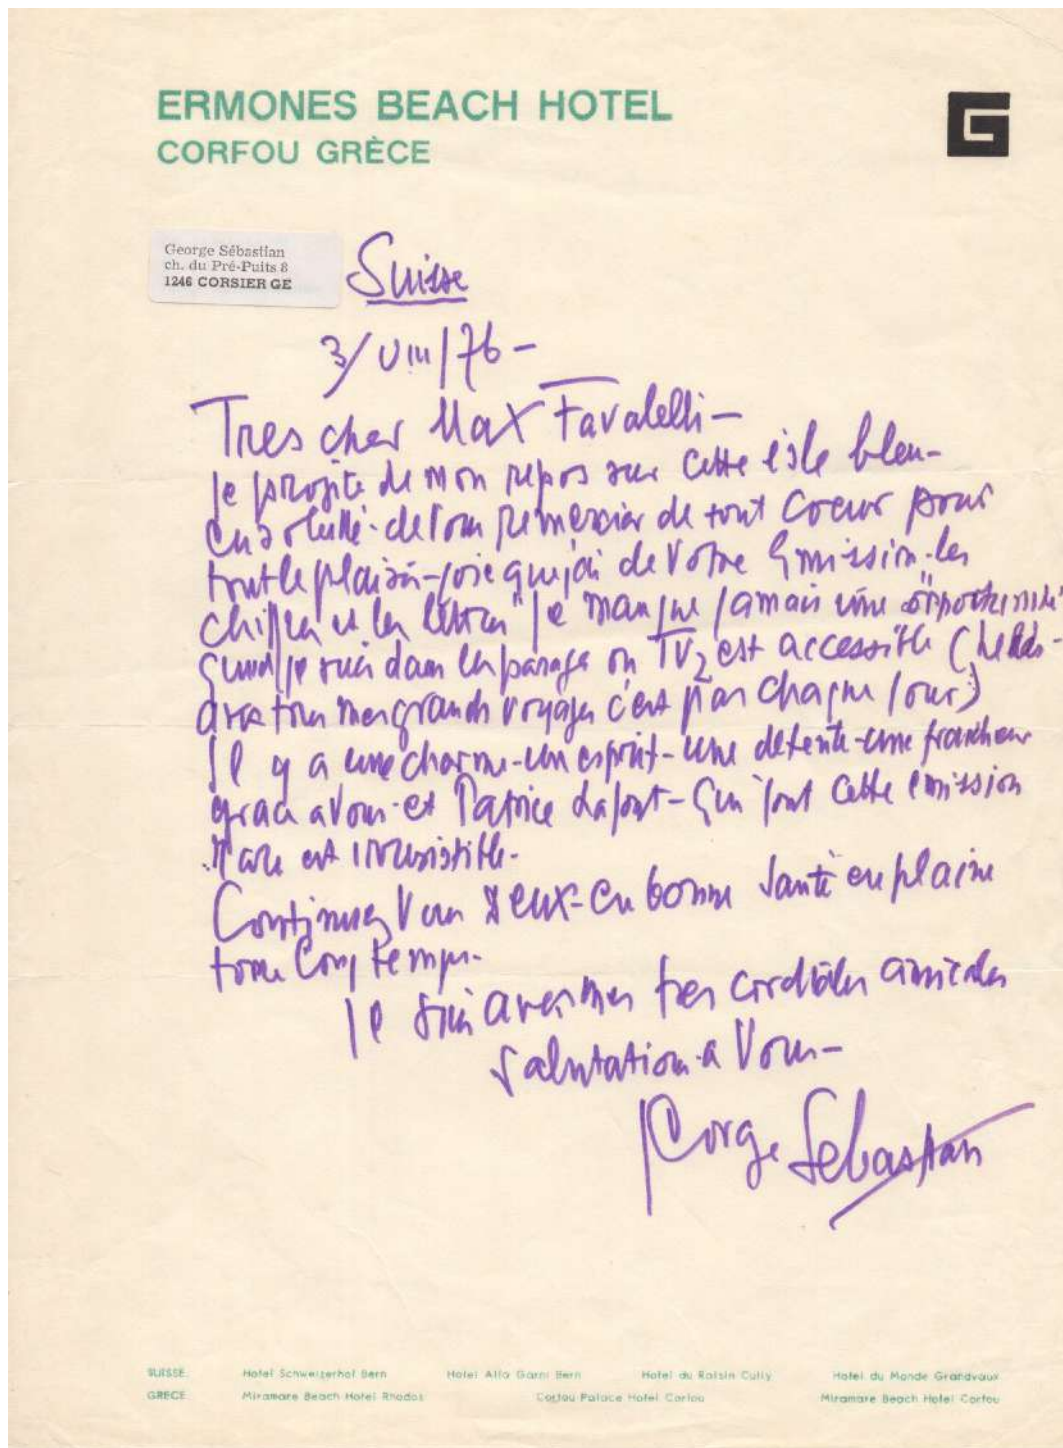 ERMONES BEACH HOTEL
CORFOU GRÈCE
G
George Sébastian
ch. du Pré-Puits 8
1246 CORSIER GE
Suisse
3/VIII/76-
Tres cher Max Favalelli-
Je profite de mon repos sur cette isle bleu-
de vous remercier de tout coeur pour
tout le plaisir-joie que j'ai de Votre Emission-les
chiffres et les lettres" Je manque jamais une
quand je suis dans les parages ou TV2 est accessible (
mes grands voyages c'est pas chaque jour)
Il y a une charme-un esprit-une detente-une fraicheur
grace a Vous-et Patrice Lafont-Qui font cette emission
rare et irresistible-
Continuez Vous Deux-en bonne Santé en pleine
forme Long temps-
Je suis avec mes tres cordiales amicales
Salutation a Vous-
George Sebastian
SUISSE: Hotel Schweizerhof Bern Hotel Alfa Garni Bern Hotel du Raisin Cully Hotel du Monde Grandvaux
GRECE Miramare Beach Hotel Rhodos Corfou Palace Hotel Corfou Miramare Beach Hotel Corfou